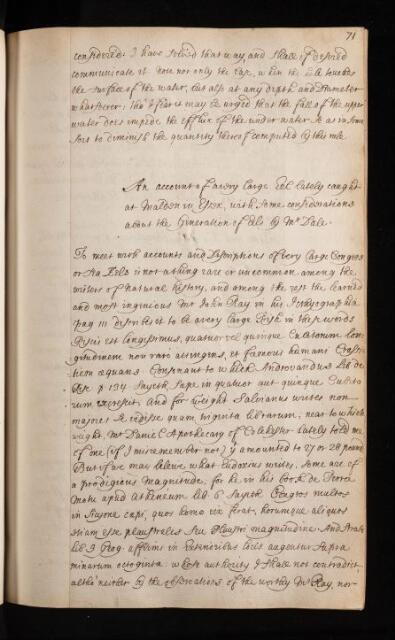 71
considered: I have solved that way, and shall if desired
communicate it not only the Case, when the hole touches
the surface of the water, but also at any depth and Diameter
whatsoever: tho' I fear it may be urged that the fall of the upper
water does impede the efflux of the under water so as in some
sort to diminish the quantity thereof computed by this rule
An account of a very large Eel lately caught
at Maldon in Essex, with some considerations
about the Generation of Eels by Mr Dale.
To meet with accounts and Descriptions of very large Congers
or Sea Eels is not a thing rare or uncommon among the
writers of natural history, and among the rest the learned
and most ingenious Mr John Ray in his
pag 111 describes it to be a very large fish in these words
Piscis est longissimus, quatuor vel quinque Cubitorum lon
gitudinem non raro attingens, et famosus humani Crass
tiem æquans Consonant to which Androvandus lib de
Pisc p 134 sayeth Sæpe in quatuor aut quinque Cubito
rum excrescit. And for weight Salvianus writes non
majores se vidisse quam triginta librarum; near to which
weight, Mr Daniel Apothecary of Colchester lately told me
of one (if I misremember not) yt amounted to 27 or 28 pound
But if we may believe what Eudoxus writes, some are of
a prodigious magnitude, for he in his book de Terræ
Motu apud Athenæum lib 6 sayeth Congros multos
in Sicyone capi, quos homo vix ferat, horumque aliquos
etiam esse plaustrales seu Plaustri magnitudine. And Strabo
lib 3 Geog. affirms in locis augentur supra
minarum octoginta whose authority I shall not contradict
altho' neither by the observations of the worthy Mr Ray, nor